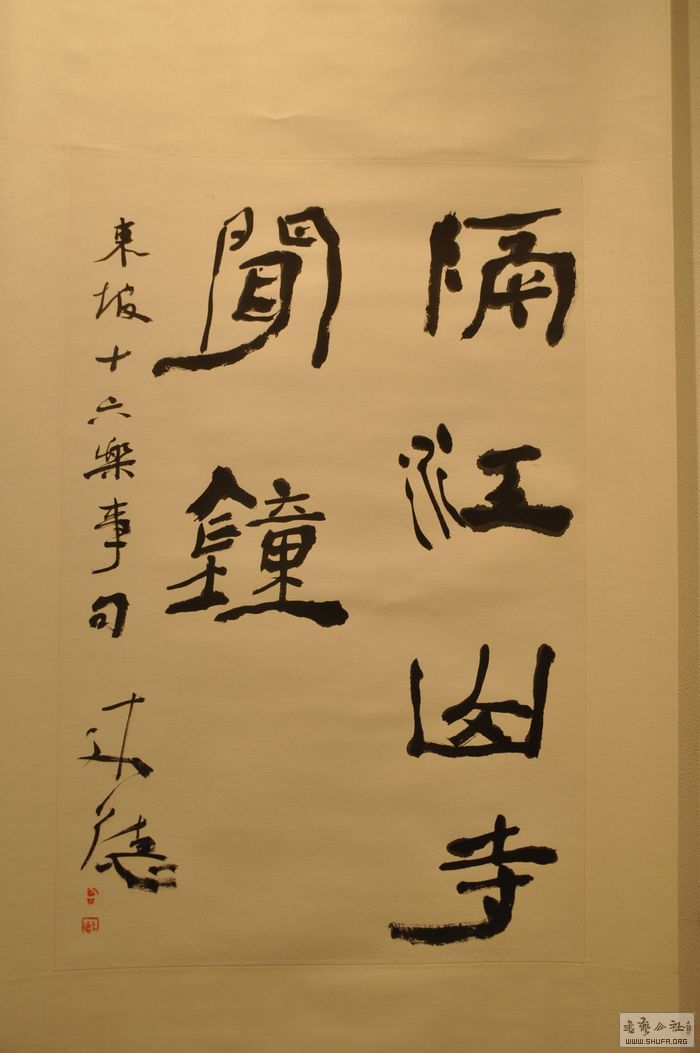 隔江山寺
聞鐘
東坡十六樂事句 来德
書藝公社
WWW.SHUFA.ORG